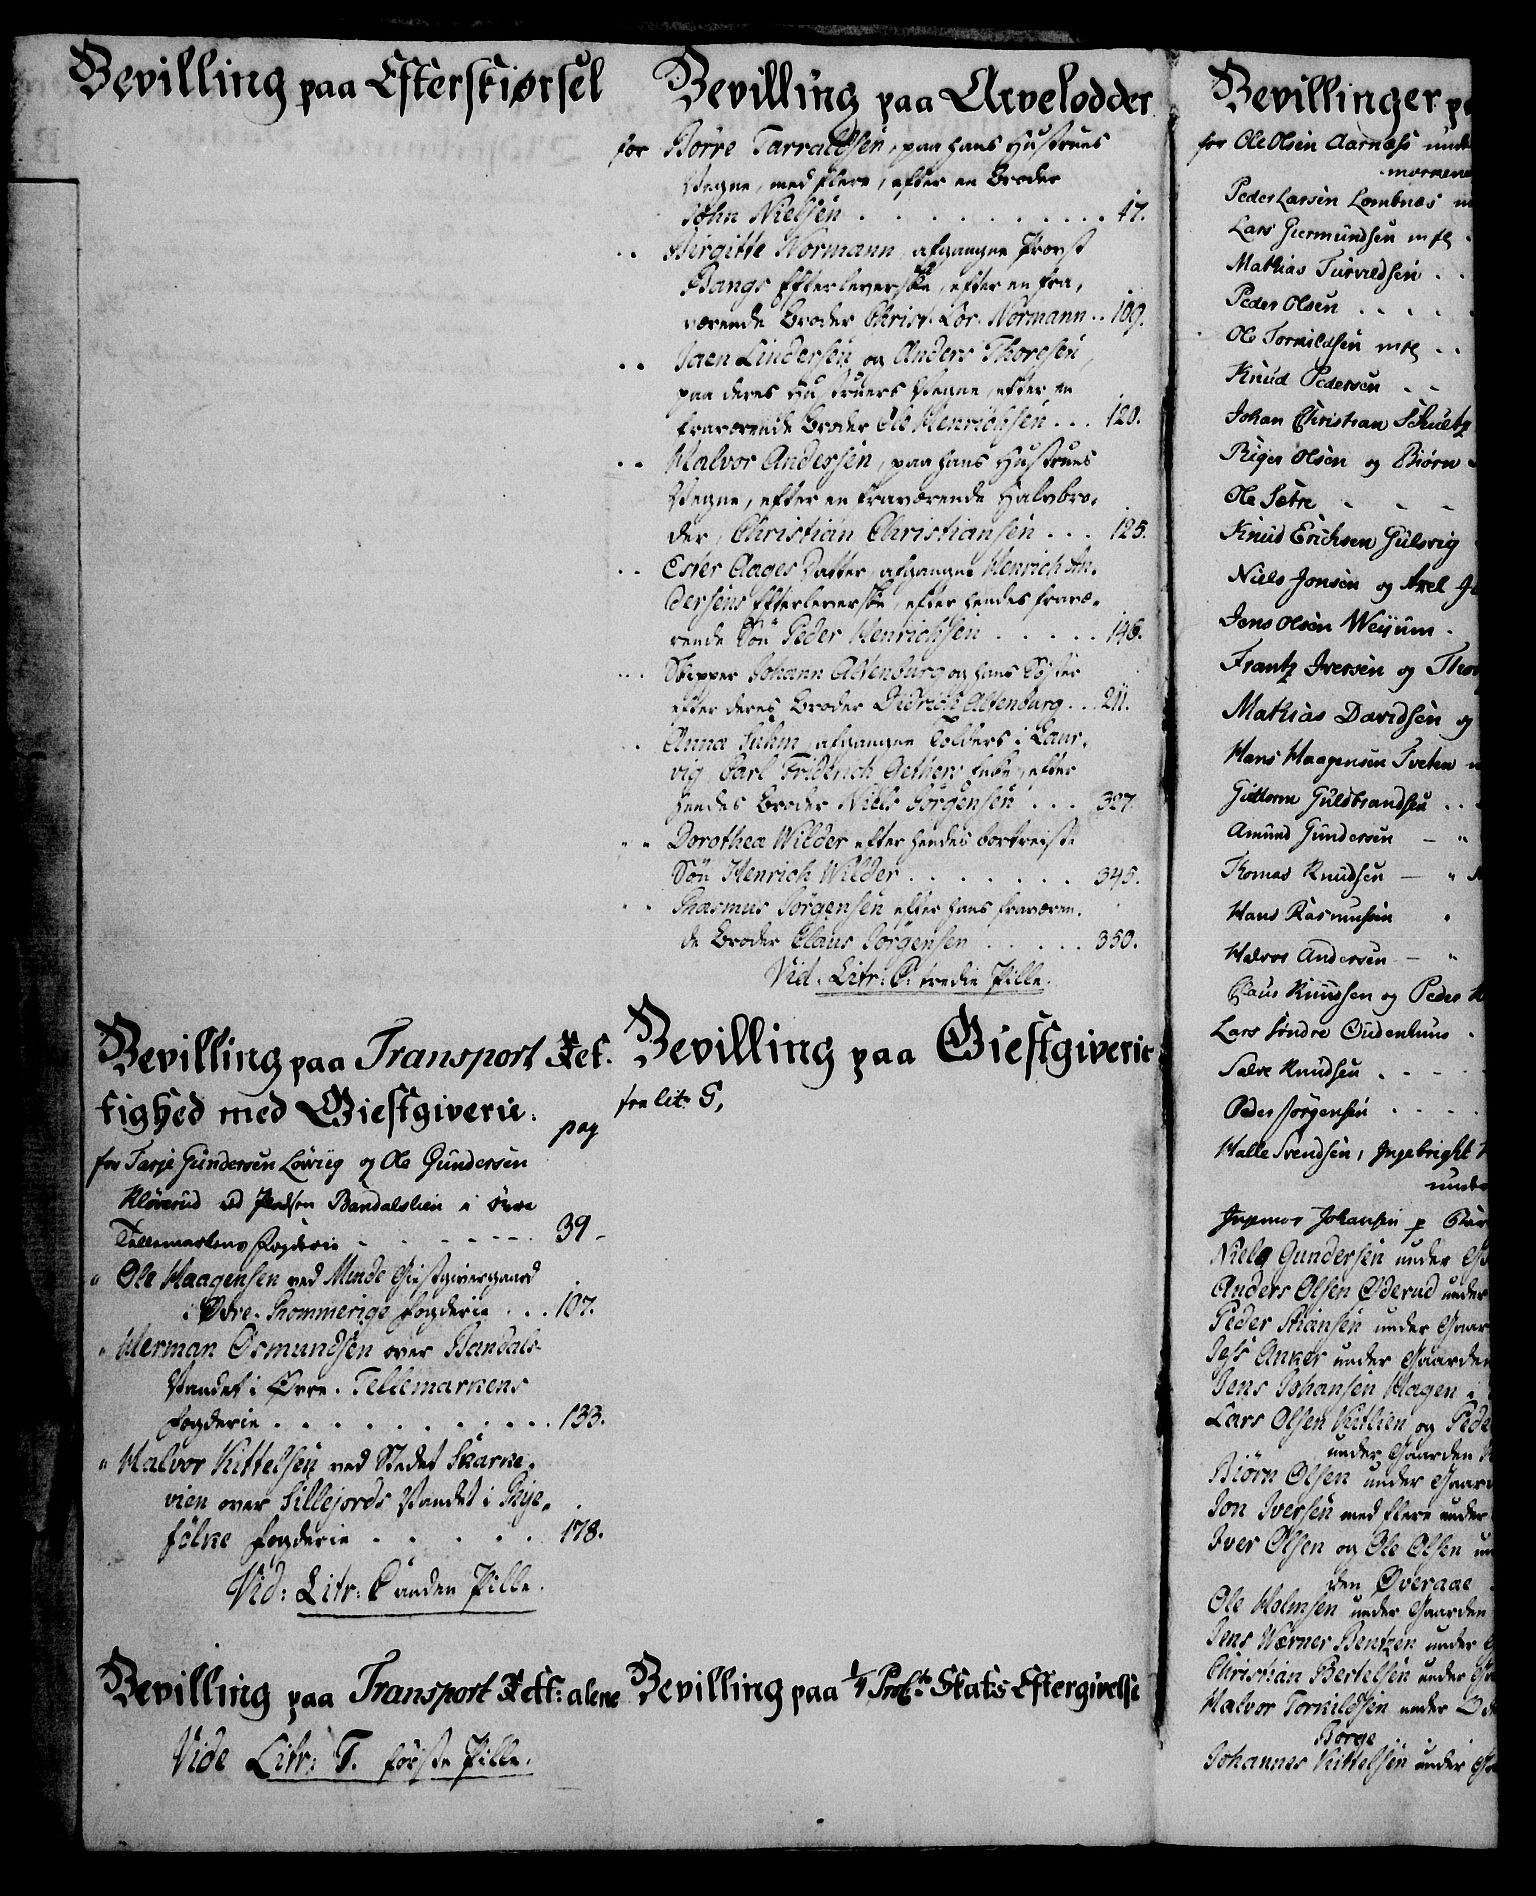 Bevilling paa Efterskiørsel
Bevilling paa Transport Ret-
tighed med Giestgiverie.
pag
for Tarje Gundersen Lovvig og Ole Gundersen
Kløverud ved Bandalslien i övre
Tellemarkens Fogderie - - - - 39 -
" Ole Haagensen ved Minde Giestgivergaard
i Øvre Rommerige Fogderie . . . 107.
" Herman Osmundsen over Bandals-
Vandet i Øvre Tellemarkens
Fogderie . . . . . . . . . . . 133.
" Halvor Kittelsen ved Stedet Skarke-
vien over Sillejords Vandet i Rye-
fölke Fogderie . . . . . . 178.
Vid: Litr: C anden Pille.
Bevilling paa Transport Rett: alene
Vide Litr: T. förste Pille.
Bevilling paa Arvelodder
for Börre Tarraldsen, paa hans Hustrues
Vegne, med flere, efter en Broder
John Nielsen . . . . . . . . . . 47.
.. Birgitte Normann, afgangne Provst
Bangs Efterleverske, efter en fra-
værende Broder Christ. Lor. Normann . . 109.
.. Jaen Lindersen og Anders Thoresen,
paa deres Hustruers Vegne, efter en
fraværende Broder Ole Henrichsen . . . 120.
.. Halvor Andersen, paa hans Hustrues
Vegne, efter en fraværende Halvbro-
der, Christian Christiansen . . . 125.
.. Ester Aages Datter, afgangne Henrich An-
dersens Efterleverske, efter hendes fravæ-
rende Sön Peder Henrichsen . . . . . 148.
... Skipper Johann Altenburg og hans Söster
efter deres Broder Didrich Altenburg . . 211.
.. Anna Juhm afgangne Tolders i Laur-
vig, Carl Friderich Gethers Enke, efter
hendes Broder Niels Jörgensen . . . 327.
" " Dorothea Wilder efter hendes bortreiste
Sön Henrich Wilder . . . . . . . 345.
" " Rasmus Jörgensen efter hans fraværen-
de Broder Claus Jörgensen . . . . . 350.
Vid. Litr: C: tredie Pille.
Bevilling paa Giestgiverie
fra lit. G,
Bevilling paa 1/4 Proct. Skats Eftergivelse
Bevillinger p
for Ole Olsen Aarnæss unde
Peder Larsen Lombnæs m
Lars Giermundsen mfl .
Mathias Turvildsen . .
Peder Olsen . . . . .
Ole Torkildsen mfl . .
Knud Pedersen . . .
Johan Christian Schultz
Riger Olsen og Biørn
Ole Sætre - - -
Knud Erichsen Gulsvig
Niels Jonsen og Axel J
Jens Olsen Weyum .
Frantz Iversen og Thor
Mathias Davidsen og
Hans Haagensen Tveten
Guttorm Guldbrandsen . .
Amund Gundersen — "
Thomas Knudsen — "
Hans Rasmusen "
Halvor Andersen — "
Claus Knudsen og Peder
Lars söndre Oudenhuus .
Salve Knudsen . - - -
Peder Jörgensen . . . .
Halle Svendsen, Ingebright
unde
Ingemor Johansen p
Niels Gundersen under G
Anders Olsen Oderud under
Peder Stiansen under Gaar
Jess Anker under Gaarden
Jens Johansen Hagen i
Lars Olsen Kithien og Pede
under Gaarden
Biörn Olsen under Gaar
Jon Iversen med flere under
Iver Olsen og Ole Olsen un
den Øveraae
Ole Holmsen under Gaarden
Jens Werner Bentzen under
Christian Bertelsen under G
Halvor Torkildsen under
Borge . .
Johannes Kittelsen under G